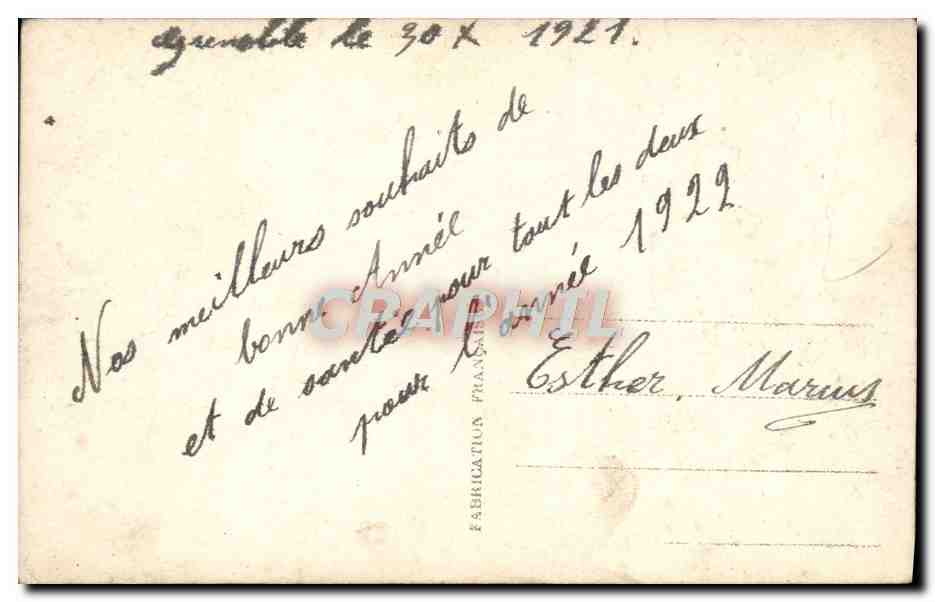 Grenoble le 30 X 1921.
Nos meilleurs souhaits de
bonne Année
et de santé pour tout les deux
pour l'année 1922
Esther, Marius
FABRICATION FRANÇAISE
CPAPHIL